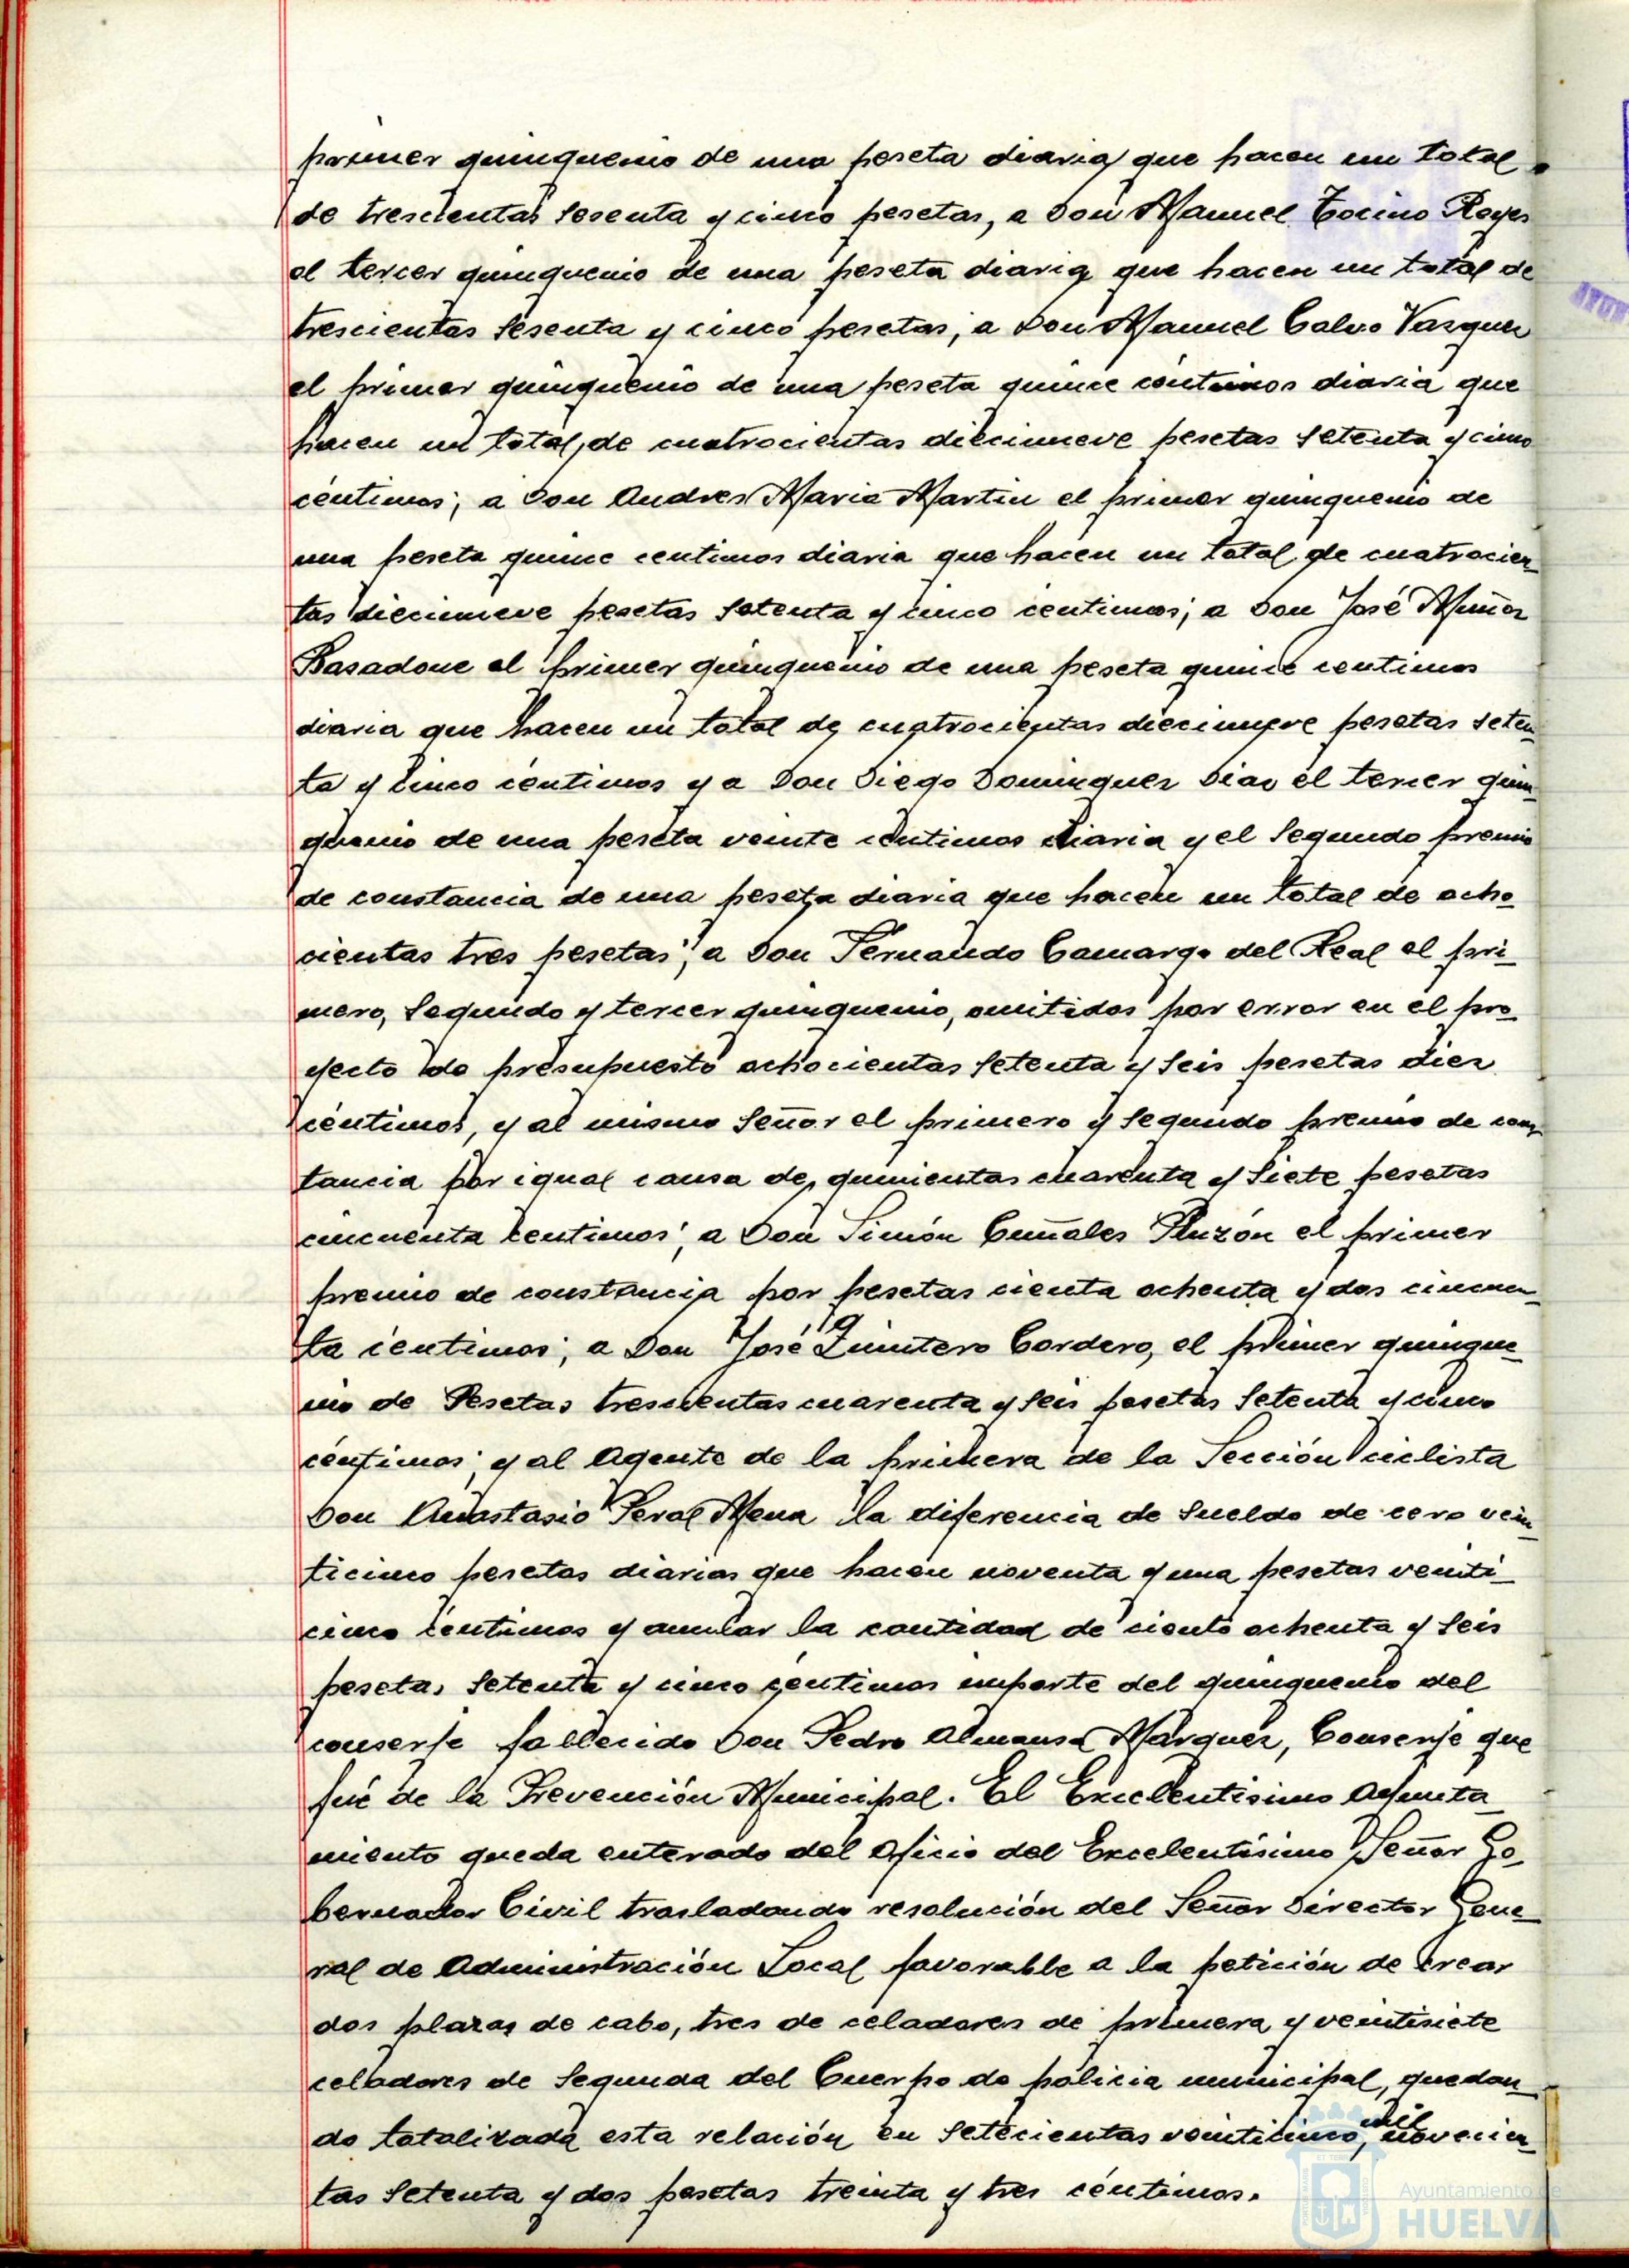 primer quinquenio de una peseta diaria que hacen un total
de trescientas sesenta y cinco pesetas, a Don Manuel Tocino Reyes
el tercer quinquenio de una peseta diaria que hacen un total de
trescientas sesenta y cinco pesetas; a Don Manuel Calvo Vazquez
el primer quinquenio de una peseta quince céntimos diaria que
hacen un total de cuatrocientas diecinueve pesetas setenta y cinco
céntimos; a Don Andres Maria Martin el primer quinquenio de
una peseta quince centimos diaria que hacen un total de cuatrocien-
tas diecinueve pesetas setenta y cinco céntimos; a Don José Muñoz
Basadone el primer quinquenio de una peseta quince centimos
diaria que hacen un total de cuatrocientas diecinueve pesetas seten-
ta y cinco céntimos y a Don Diego Dominguez Diaz el tercer quin-
quenio de una peseta veinte céntimos diaria y el segundo premio
de constancia de una peseta diaria que hacen un total de ocho-
cientas tres pesetas; a Don Fernando Camargo del Real el pri-
mero, segundo y tercer quinquenio, omitidos por error en el pro-
yecto de presupuesto ochocientas setenta y seis pesetas diez
céntimos, y al mismo Señor el primero y segundo premio de cons-
tancia por igual causa de quinientas cuarenta y siete pesetas
cincuenta centimos; a Don Simón Cuñales Pluzón el primer
premio de constancia por pesetas cienta ochenta y dos cincuen-
ta céntimos; a Don José Quintero Cordero, el primer quinque-
nio de Pesetas trescientas cuarenta y seis pesetas setenta y cinco
céntimos; y al Agente de la primera de la Sección ciclista
Don Anastasio Peral Mena la diferencia de sueldo de cero vein-
ticinco pesetas diarias que hacen noventa y una pesetas veinti-
cinco céntimos y anular la cantidad de ciento ochenta y seis
pesetas setenta y cinco céntimos importe del quinquenio del
conserje fallecido Don Pedro Almansa Márquez, Conserje que
fué de la Prevención Municipal. El Excelentisimo Ayunta-
miento queda enterado del oficio del Excelentísimo Señor Go-
bernador Civil trasladando resolución del Señor Director Gene-
ral de Administración Local favorable a la petición de crear
dos plazas de cabo, tres de celadores de primera y veintisiete
celadores de segunda del Cuerpo de policia municipal, quedan-
do totalizada esta relación en setecientas veinticinco, mil novecien-
tas setenta y dos pesetas treinta y tres céntimos.
Ayuntamiento de
HUELVA